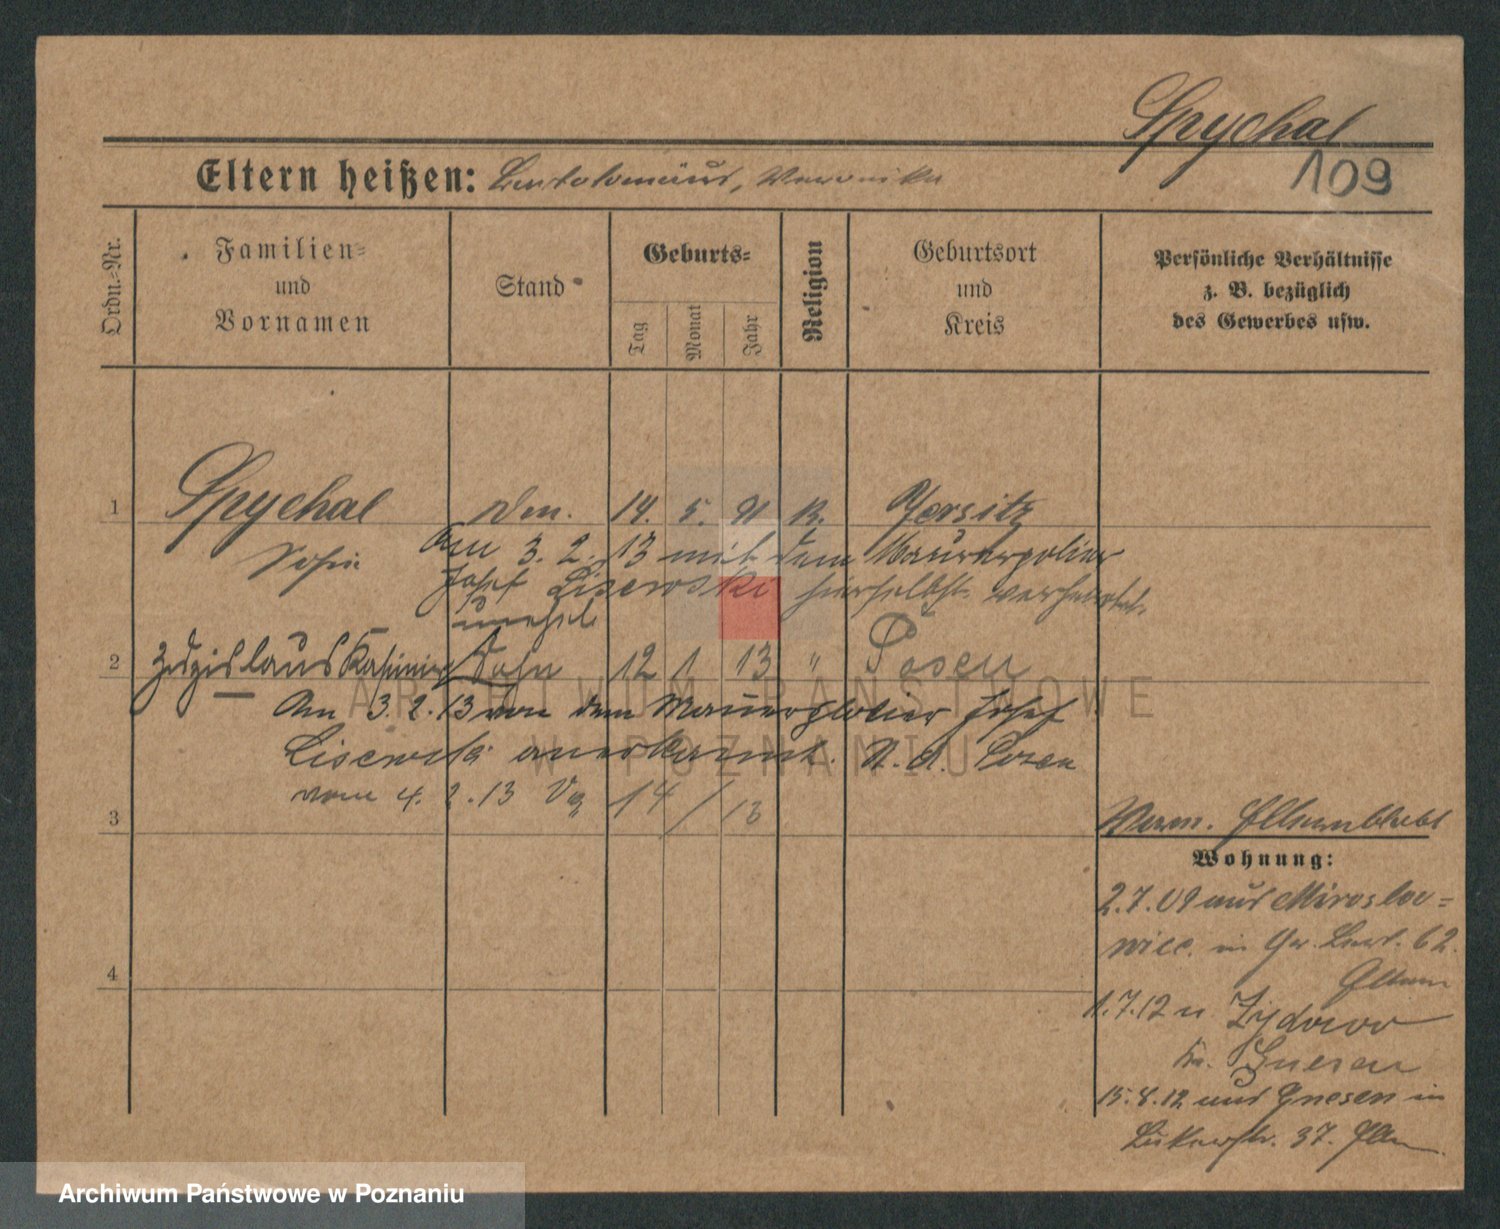 Spychal
109
Eltern heißen: Bartolomäus, Veronika
Ordn.-Nr.
Familien-
und
Vornamen
Stand
Geburts-
Tag
Monat
Jahr
Religion
Geburtsort
und
Kreis
Persönliche Verhältnisse
z. B. bezüglich
des Gewerbes usw.
1 Spychal 14. 5. 91 K. Jersitz
Sofie Am 3. 2. 13 mit dem Maurerpolier
Josef Lisewski hierselbst verheiratet.
unehel.
2 Zdzislaus Kasimir Sohn 12 1 13 " Posen
Am 3. 2. 13 von dem Maurerpolier Josef
Lisewski anerkannt. St. A. Posen
vom 4. 2. 13 14/13
3
4
Wohnung:
2.7.09 aus Miroslaw=
wiec. in Gr. 62.
Eltern
1.7.12 n. Zydowo
Kr. Gnesen
15.8.12 aus Gnesen in
37.
ARCHIWUM PAŃSTWOWE
W POZNANIU
Archiwum Państwowe w Poznaniu